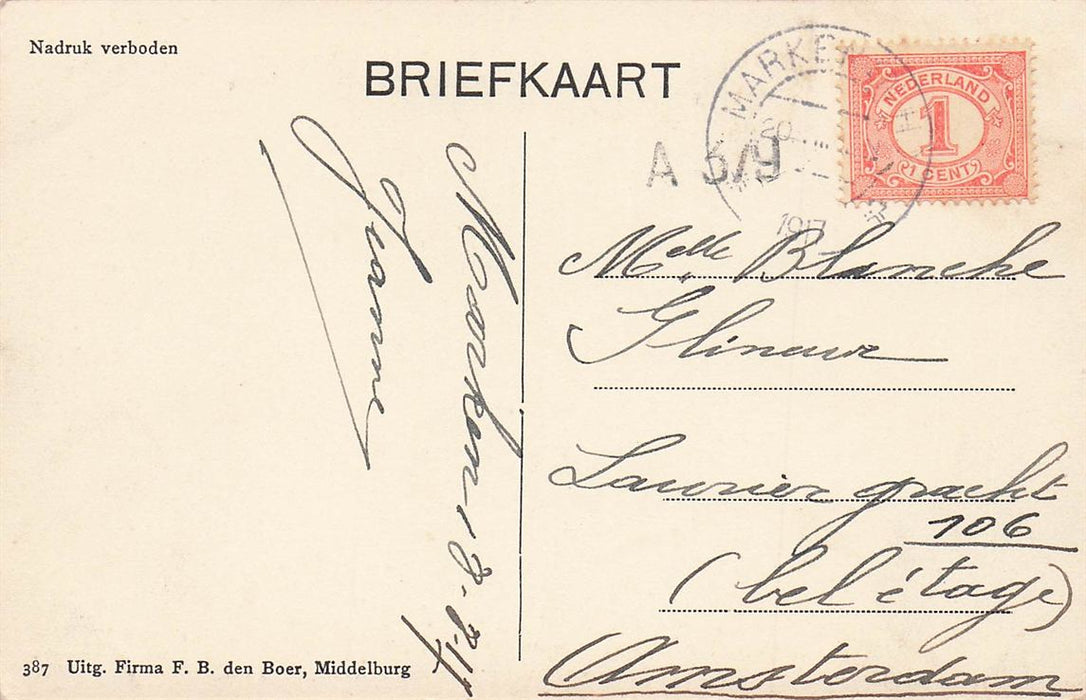 Nadruk verboden
BRIEFKAART
MARKEN
1917
A 3/y
NEDERLAND
1
1 CENT
Marken 18-8-17
Jeanne
Melle Blanche
Glineur
Laurier gracht
106
(bel étage)
Amsterdam
387 Uitg. Firma F. B. den Boer, Middelburg